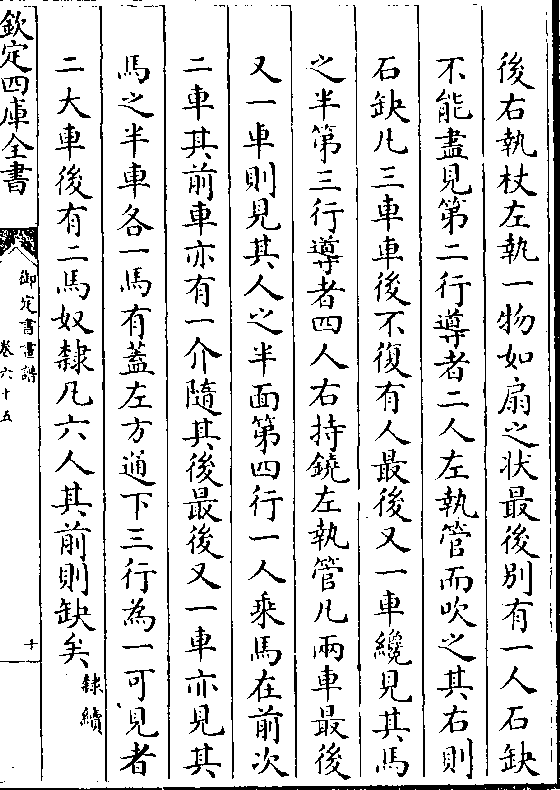 後右執杖左執一物如扇之状最後别有一人石缺
不能盡見第二行導者二人左執管而吹之其右則
石缺凡三車車後不復有人最後又一車纔見其馬
之半第三行導者四人右持鐃左執管凡兩車最後
又一車則見其人之半面第四行一人乘馬在前次
二車其前車亦有一介隨其後最後又一車亦見其
馬之半車各一馬有蓋左方通下三行為一可見者
二大車後有二馬奴隸凡六人其前則缺矣隸續
欽定四庫全書
御定書畫譜
卷六十五
十